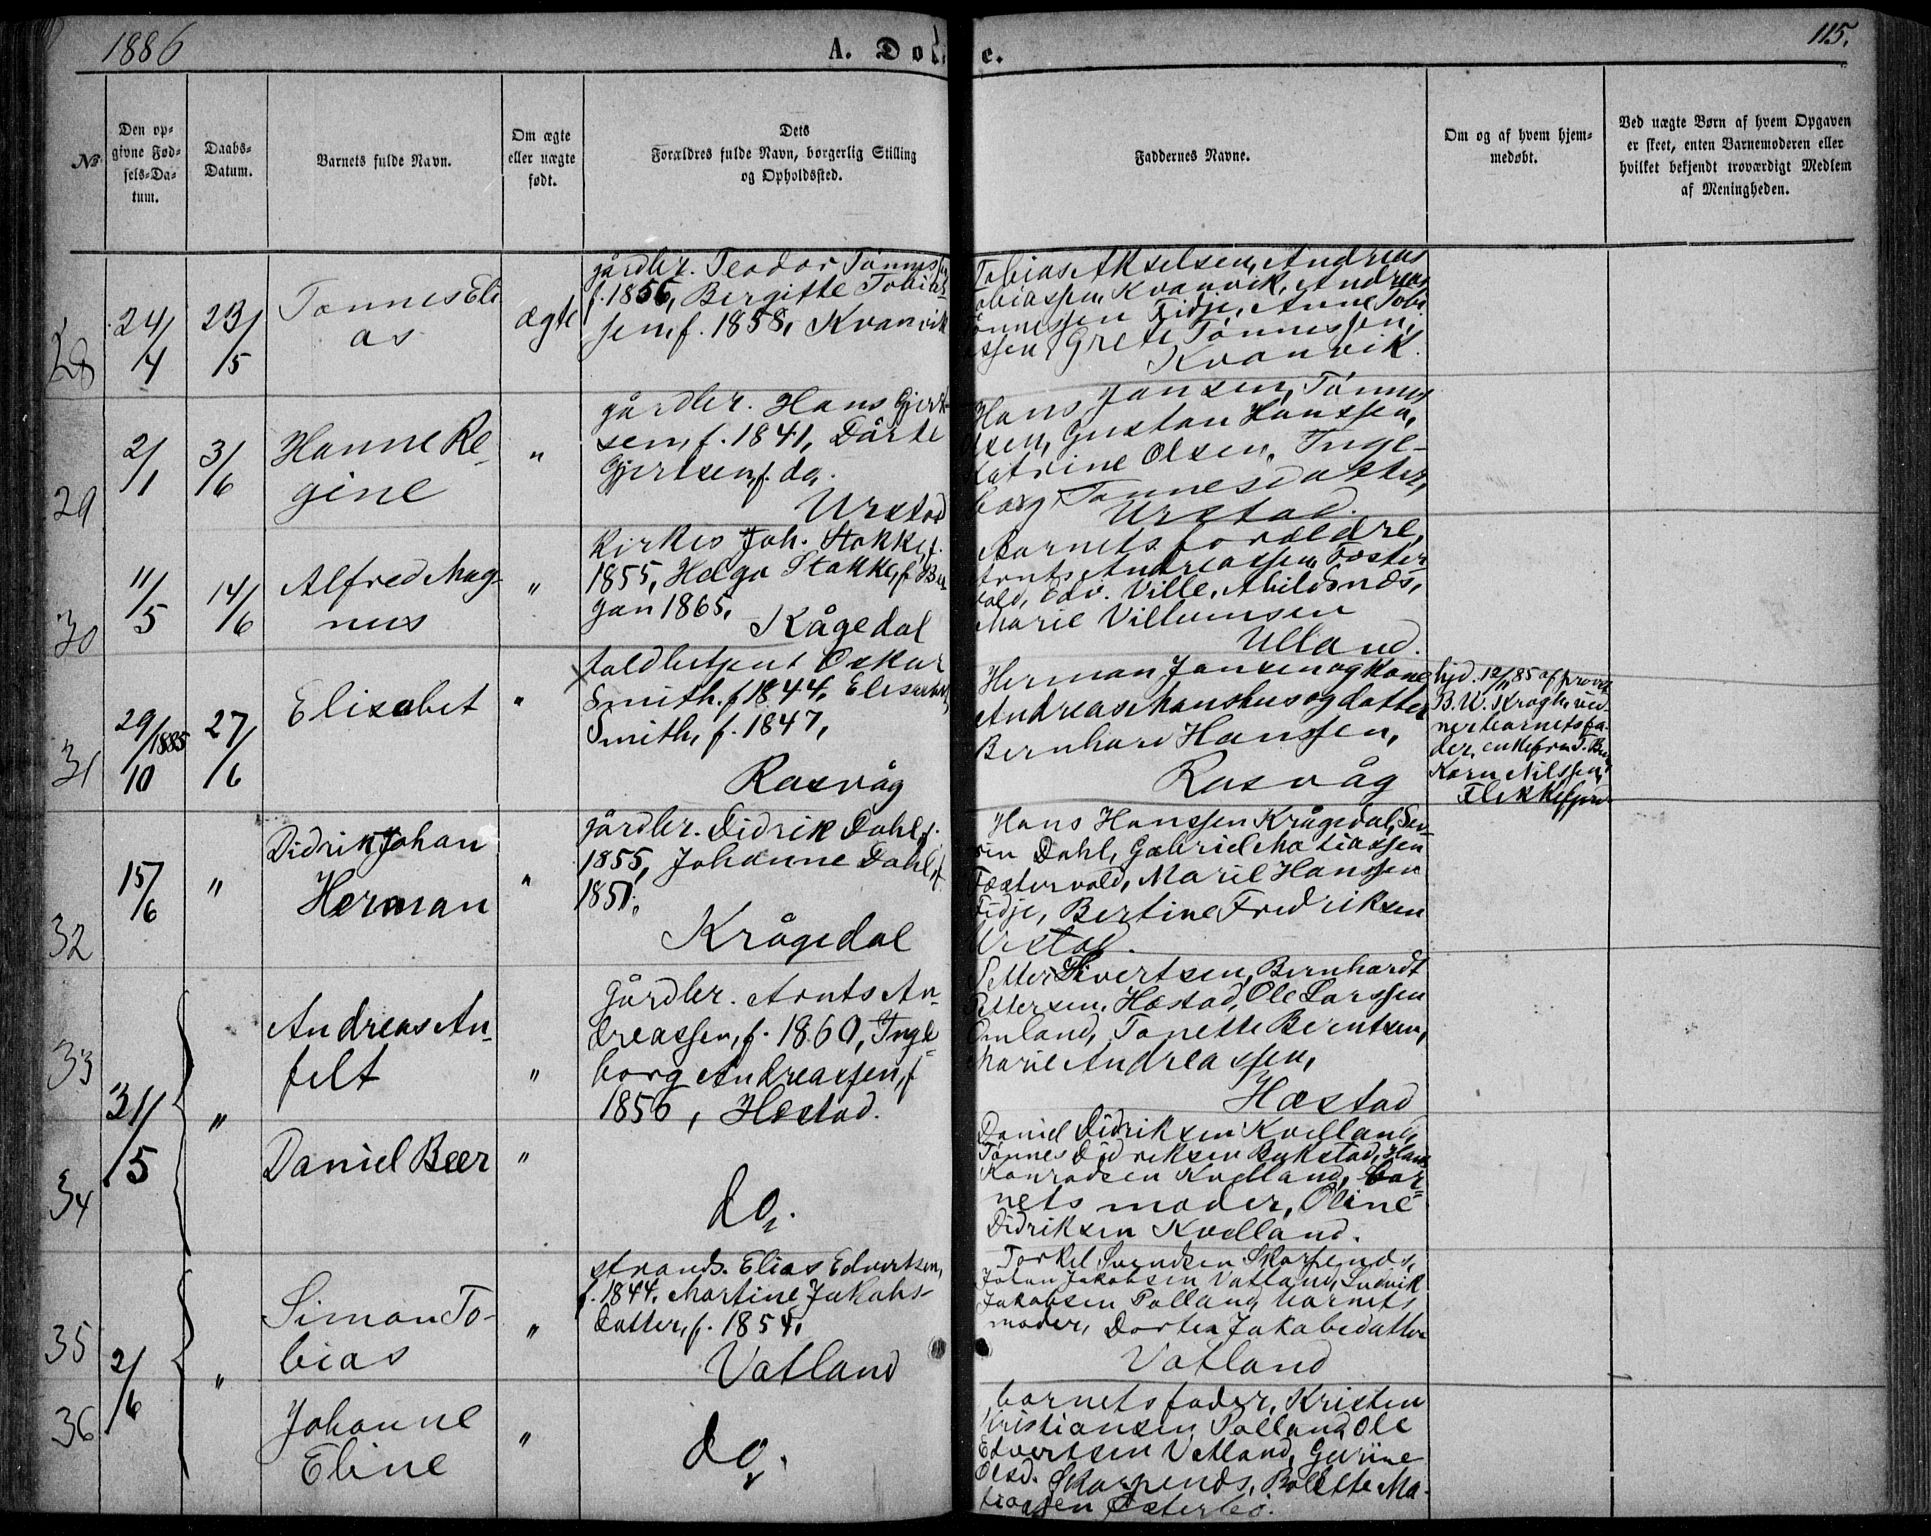 1886
A. Dobte.
115.
No
Den op-
givne Fød-
sels-Da-
tum.
Daabs-
Datum.
Barnets fulde Navn.
Om ægte
eller uægte
født.
Dets
Forældres fulde Navn, borgerlig Stilling
og Opholdssted.
Faddernes Navne.
Om og af hvem hjem-
medøbt.
Ved uægte Børn af hvem Opgaven
er skeet, enten Barnemoderen eller
hvilket bekjendt troværdigt Medlem
af Menigheden.
28
24/4
23/5
Tønnes Eli
as
ægte
gårdbr. Teodor Tønnes
f. 1856, Bergitte Tobias
sen, f. 1858, Kvanvik
Tobias Akselsen, Andreas
Tobiassen Kvanvik, Andreas
Tønnessen Fidje, Anne Tobi
assen, Grete Tønnessen,
Kvanvik.
29
2/1
3/6
Hanne Re-
gine
"
gårdbr. Hans Gjert-
sen, f. 1841, Dårte
Gjertsen, f. do.
Urstad
Hans Jansen, Tønnes
Olsen, Gustav Hanssen,
Katrine Olsen, Inge-
borg Tønnesdatter,
Urstad.
30
11/5
14/6
Alfred Mag-
nus
"
Kirkes Joh. Stakke, f.
1855, Helga Stakke, f. Ber
gan 1865,
Kågedal
Barnets forældre,
Arnts Andreassen Foster
vold, Edv. Ville, Abildsnæs,
Marie Villumsen
Ulland.
31
29/10 1885
27/6
Elisabet
"
toldbetjent Oskar
Smith, f 1844, Elisabet
Smith, f. 1847,
Rasvåg
Herman Jansen og Kone
Andreas Monshus og datter
Bernhard Hanssen,
Rasvåg
hjd. 12/11 85 af provst
B. W. Krogh, vid-
ner barnets fa-
der, enkefru T. Ber
Karn Nilssen,
Flekkefjord
32
15/6
"
Didrik Johan
Herman
"
gårdbr. Didrik Dahl, f.
1855, Johanne Dahl, f.
1851,
Krågedal
Hans Hanssen Krågedal, Sev-
rin Dahl, Gabriel Matiassen
Fæstervold, Marie Hanssen
Fidje, Bertine Fredriksen
Urstad.
33
31/5
"
Andreas An-
felt
"
gårdbr. Arnts An-
dreassen, f. 1860, Inge-
borg Andreassen, f
1856, Hæstad.
Petter Sivertsen, Bernhardt
Pettersen, Hæstad, Ole Larssen
Omland, Tonette Berntsen,
Marie Andreassen,
Hæstad
34
Daniel Beer
"
do.
Daniel Didriksen Kvelland,
Tønnes Didriksen Bukstad, Hans
Konradsen Kvelland, bar-
nets moder, Oline
Didriksen Kvelland.
35
2/6
"
Simon To-
bias
"
strands. Elias Edvertsen,
f. 1844, Martine Jakobs-
datter, f. 1854,
Vatland
Torkel Svendsen Skarpends,
Johan Jakobsen Vatland, Ludvik
Jakobsen Polland, barnets
moder, Dortea Jakobsdatter
Vatland
36
Johanne
Eline
"
do.
barnets fader, Kristen
Kristiansen Polland, Ole
Edvertsen Vatland, Gurine
Olsd. Skarpends, Bolette Ma-
tiassen